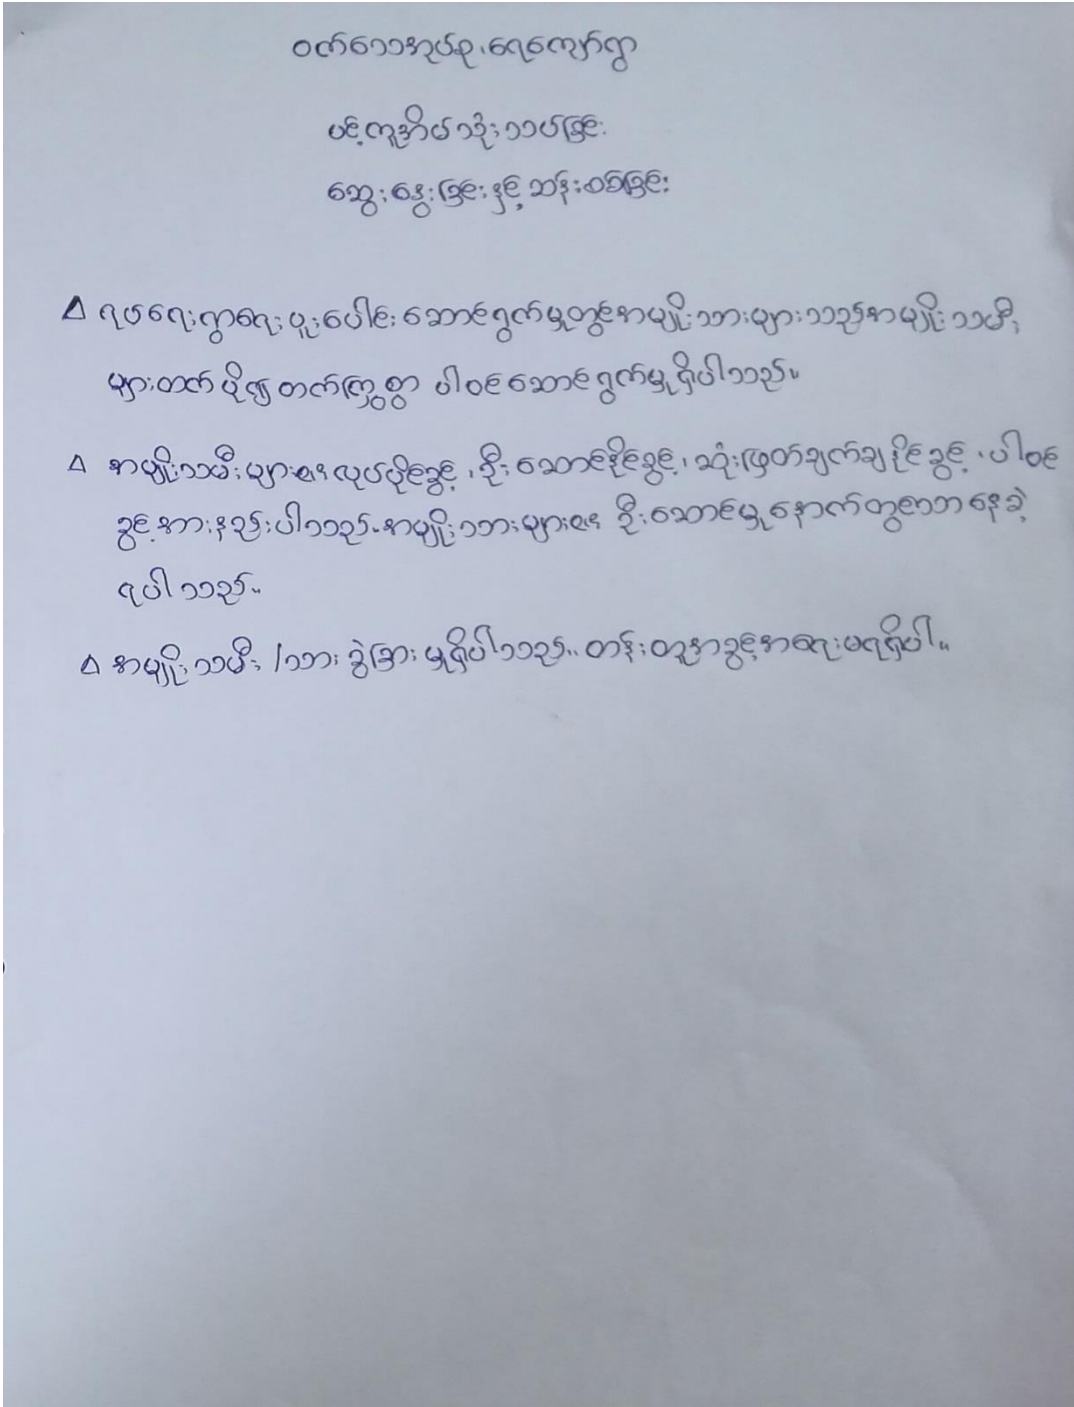 ဝက်သေအုပ်စု၊ရေကျော်ရွာ
ပင့်ကူအိမ်သုံးသပ်ခြင်း
ဆွေးနွေးခြင်းနှင့်ဆန်းစစ်ခြင်း
∆ ရပ်ရေးရွာရေးပူးပေါင်းဆောင်ရွက်မှုတွင်အမျိုးသားများသည်အမျိုးသမီး
များထက်ပို၍တက်ကြွစွာ ပါဝင်ဆောင်ရွက်မှုရှိပါသည်။
∆ အမျိုးသမီးများ၏လုပ်ပိုင်ခွင့်၊ဦးဆောင်နိုင်ခွင့်၊ဆုံးဖြတ်ချက်ချနိုင်ခွင့်၊ပါဝင်
ခွင့်အားနည်းပါသည်။အမျိုးသားများ၏ ဦးဆောင်မှုနောက်တွင်သာနေခဲ့
ရပါသည်။
∆ အမျိုးသမီး/သား ခွဲခြားမှုရှိပါသည်။ တန်းတူအခွင့်အရေးမရရှိပါ။